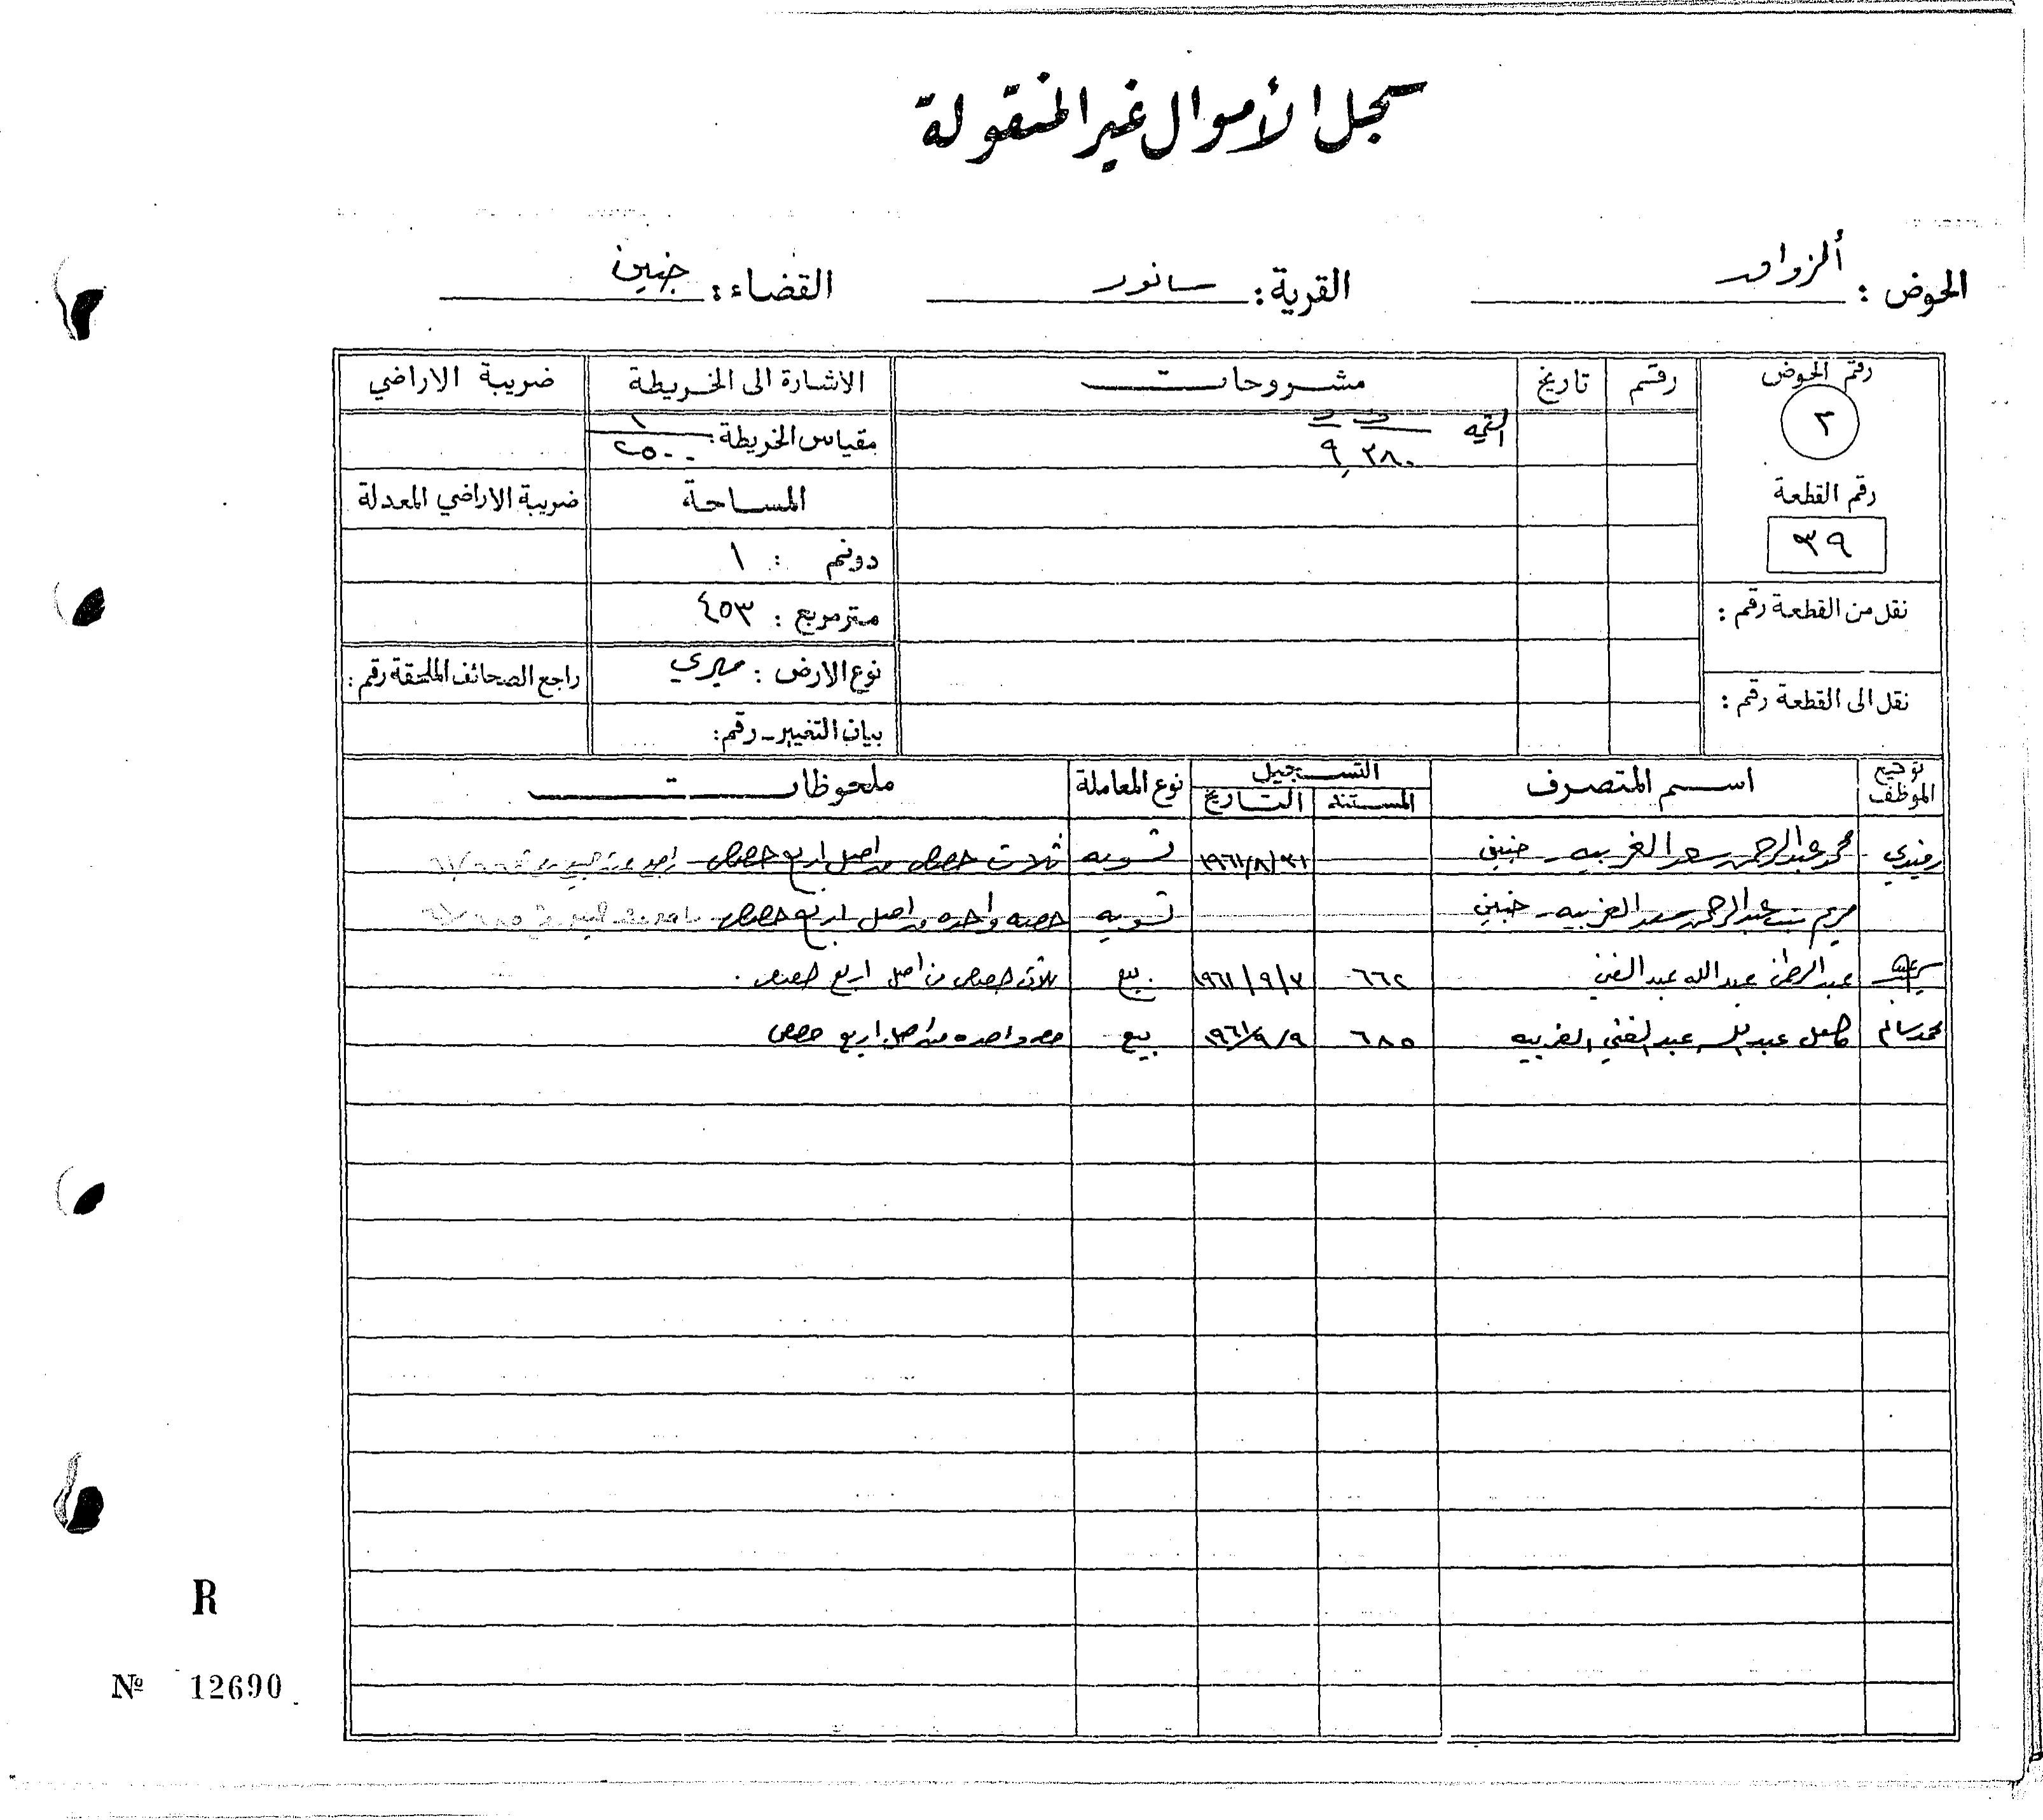 سجل الأموال غير المنقولة
الحوض : الزواور القرية : سانور القضاء : جنين
رقم الحوض رقم تاريخ مشروحات الاشارة الى الخريطة ضريبة الاراضي
٢ القيمه ٩,٢٨٠ مقياس الخريطة : ١/٢٥٠٠
رقم القطعة المساحة ضريبة الاراضي المعدلة
٣٩ دونم : ١
نقل من القطعة رقم : متر مربع : ٤٥٣
نوع الارض : ميري راجع الصحائف الملحقة رقم :
نقل الى القطعة رقم : بيان التغيير - رقم :
توقيع الموظف اسم المتصرف التسجيل نوع المعاملة ملحوظات
المستند التاريخ
محمد عبد الرحمن سعد الغربيه - جنين ٣١/٨/١٩٦١ تسويه ثلاث حصص من اصل اربع حصص
مريم بنت عبد الرحمن سعد الغربيه - جنين تسويه حصه واحده من اصل اربع حصص
عبد الرحمن عبد الله عبد الغني ٦٦٢ ٧/٩/١٩٦١ بيع ثلاث حصص من اصل اربع حصص .
محمد سالم كامل عبد الله عبد الغني الغربيه ٦٨٥ ٩/٩/١٩٦١ بيع حصه واحده من اصل اربع حصص
R
Nº 12690